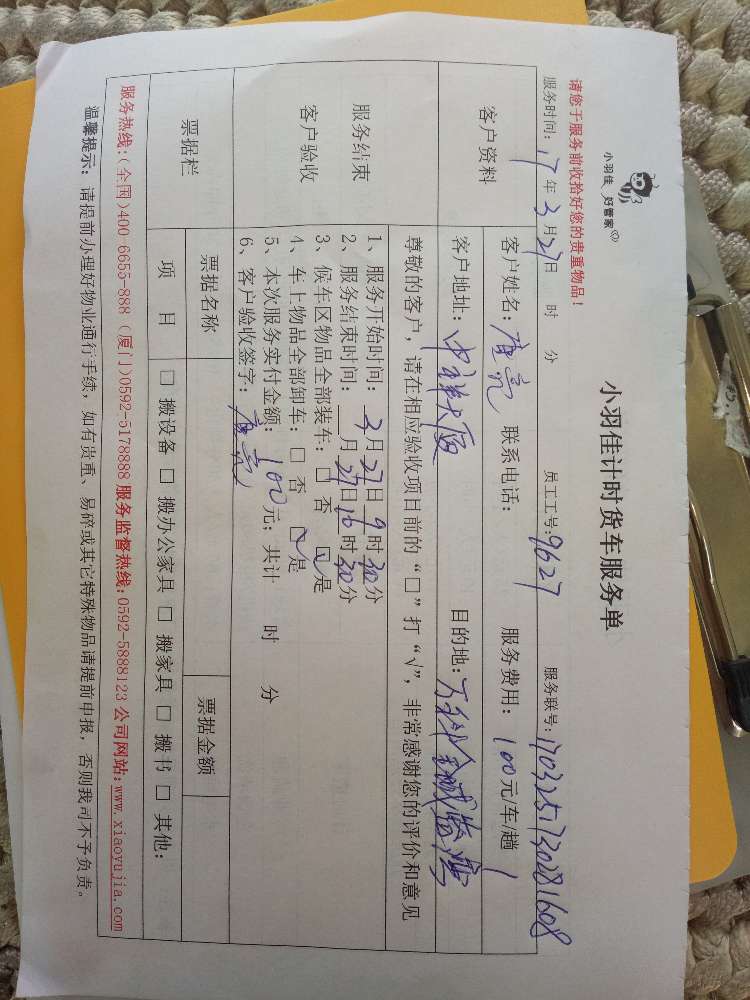 小羽佳 好管家
小羽佳计时货车服务单
请您于服务前收拾好您的贵重物品!
服务时间: 17年3月27日 时 分 员工工号: 9627 服务联号: 1703251730281608
客户资料
客户姓名: 唐亮 联系电话: 服务费用: 100元/车/趟
客户地址: 中祥大厦 目的地: 万科金域
尊敬的客户,请在相应验收项目前的“□”打“√”,非常感谢您的评价和意见
服务结束
客户验收
1、服务开始时间: 3月27日9时30分
2、服务结束时间: 月27日16时30分
3、候车区物品全部装车: □否 ☑是
4、车上物品全部卸车: □否 ☑是
5、本次服务实付金额: 100元; 共计 时 分
6、客户验收签字: 唐亮
票据栏
票据名称 票据金额
项 目 □搬设备 □搬办公家具 □搬家具 □搬书 □其他:
服务热线:(全国)400 6655-888 (厦门)0592-5178888 服务监督热线:0592-5888123 公司网站:www.xiaoyujia.com
温馨提示: 请提前办理好物业通行手续,如有贵重、易碎或其它特殊物品请提前申报,否则我司不予负责。